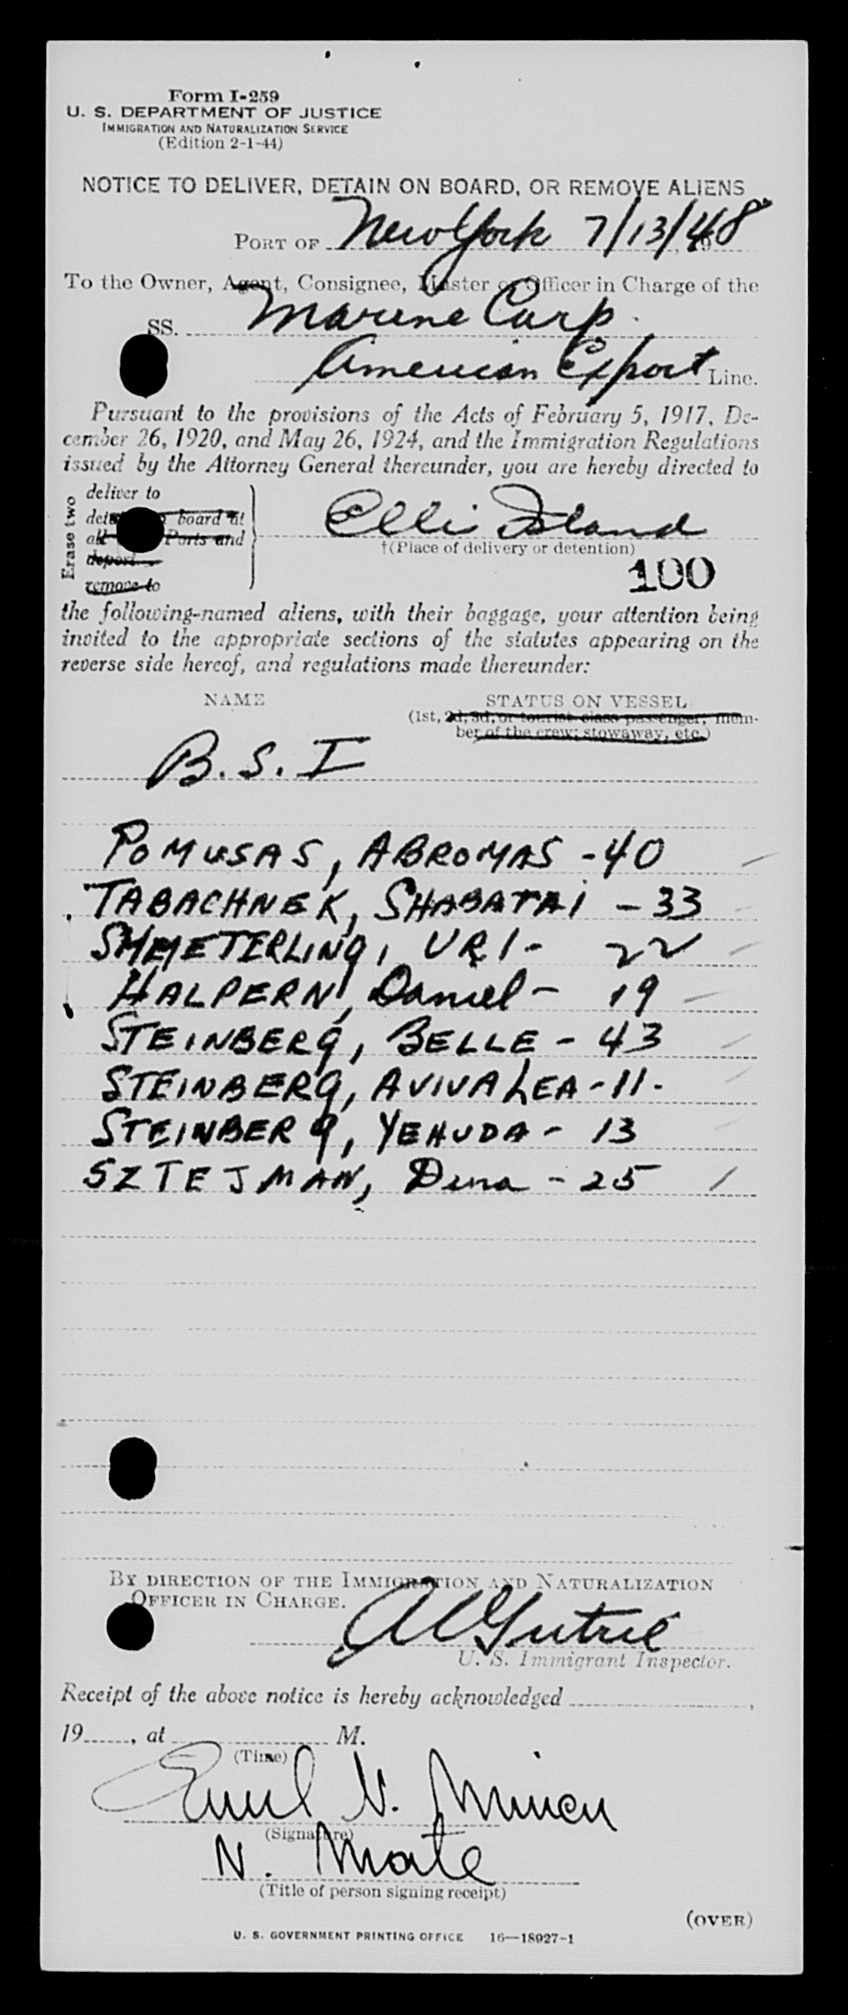 Form I-259
U. S. DEPARTMENT OF JUSTICE
IMMIGRATION AND NATURALIZATION SERVICE
(Edition 2-1-44)
NOTICE TO DELIVER, DETAIN ON BOARD, OR REMOVE ALIENS
PORT OF New York 7/13/48
To the Owner, Agent, Consignee, Master or Officer in Charge of the
SS. Marine Carp.
American Export Line.
Pursuant to the provisions of the Acts of February 5, 1917, De-
cember 26, 1920, and May 26, 1924, and the Immigration Regulations
issued by the Attorney General thereunder, you are hereby directed to
Erase two
deliver to
board at
all Ports and
deport
remove to
Ellis Island
†(Place of delivery or detention)
100
the following-named aliens, with their baggage, your attention being
invited to the appropriate sections of the statutes appearing on the
reverse side hereof, and regulations made thereunder:
NAME STATUS ON VESSEL
(1st, 2d, 3d, or tourist class passenger; mem-
ber of the crew; stowaway, etc.)
B. S. I
POMUSAS, ABROMAS - 40
TABACHNEK, SHABATAI - 33
SMMETERLING, URI - 22
HALPERN, Daniel - 19
STEINBERG, BELLE - 43
STEINBERG, AVIVA LEA - 11.
STEINBERG, YEHUDA - 13
SZTEJMAN, Dina - 25
BY DIRECTION OF THE IMMIGRATION AND NATURALIZATION
OFFICER IN CHARGE.
U. S. Immigrant Inspector.
Receipt of the above notice is hereby acknowledged ,
19 , at M.
(Time)
Emil N.
(Signature)
N. Mate
(Title of person signing receipt)
(OVER)
U. S. GOVERNMENT PRINTING OFFICE 16—18027-1